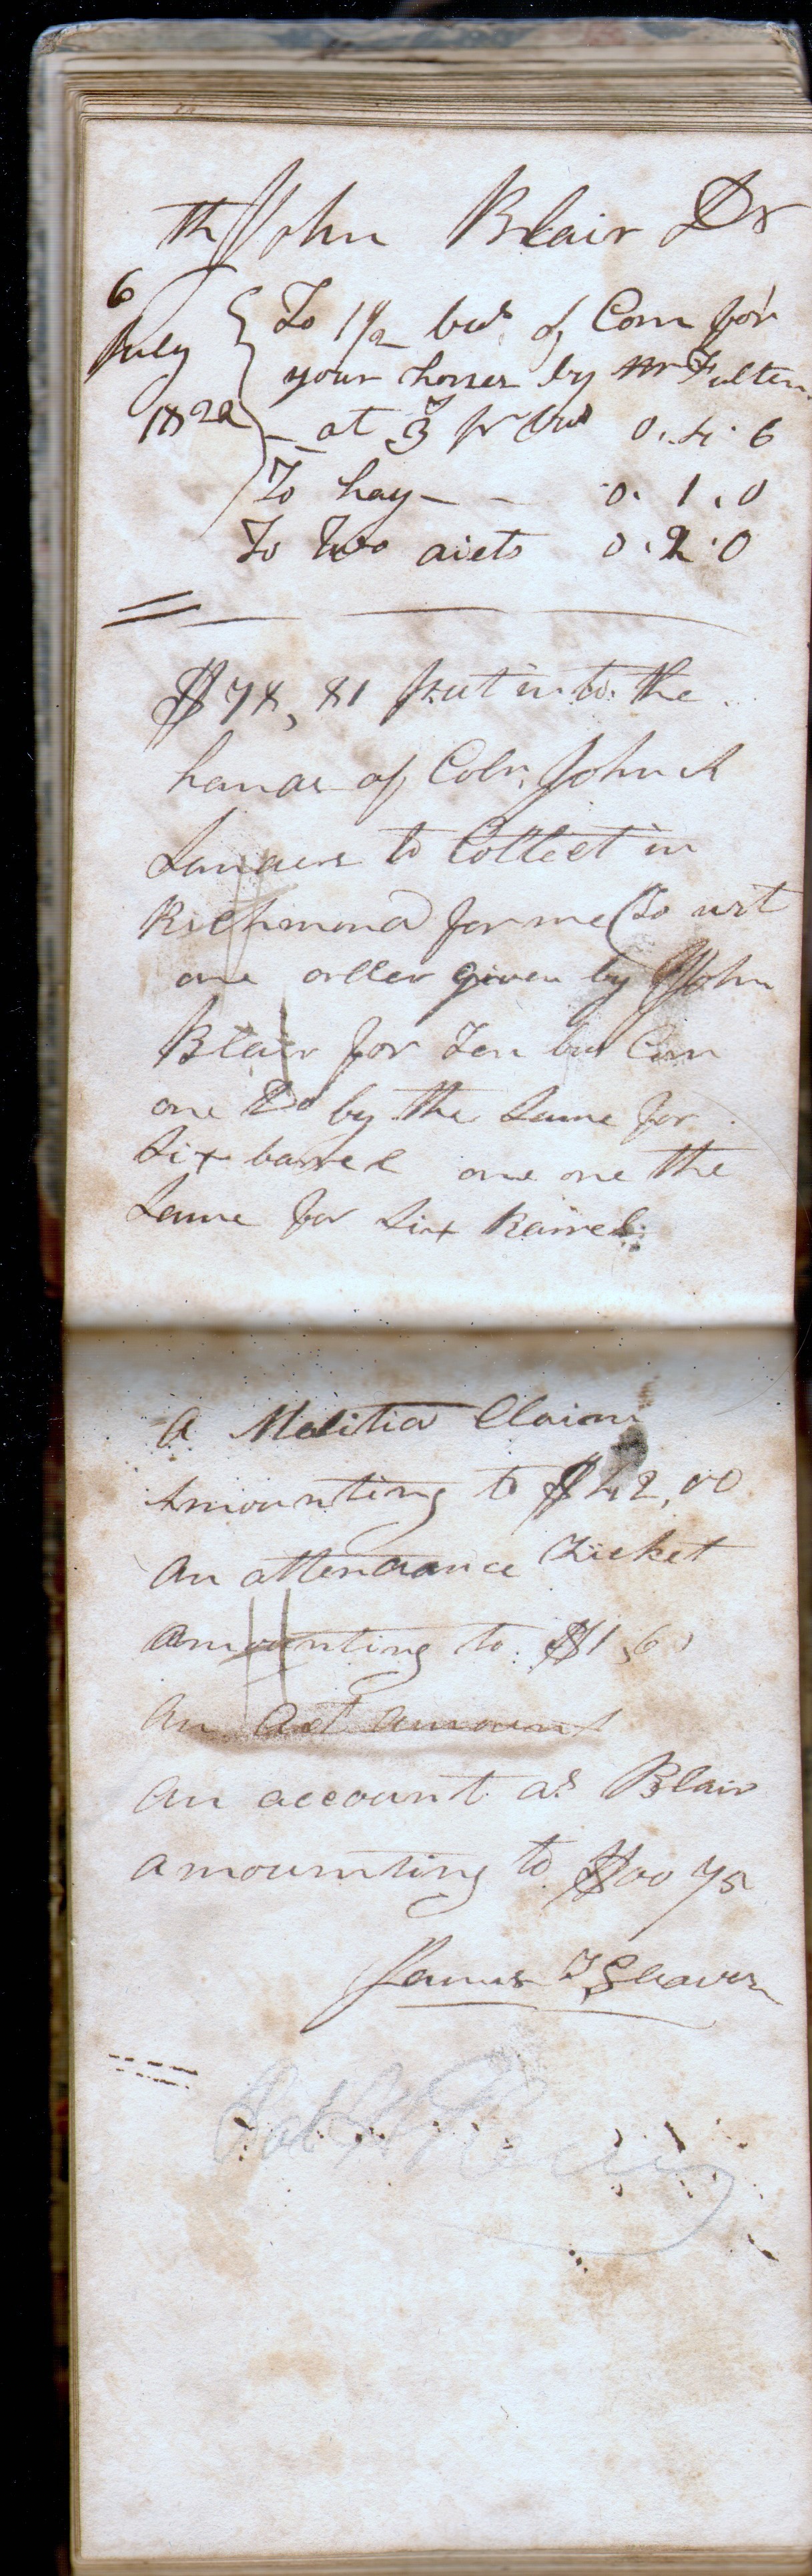 th John Blair Dr
6
July
1822
To 1 1/2 bus of Corn for
your horses by Mr Fulten
at 3 pr bus 0.4.6
To hay - - 0.1.0
To Two diets 0.2.0
$78,81 put into the
hands of Coln. John
Landers to Collect in
Richmond for me (To wit
one order given by John
Blair for Ten bus Corn
one Do by the same for
Six barrel one one the
Same for Six Barrels
A Malitia Claim
Amounting to $42,00
An attendance Ticket
amounting to $1,6
An act amount
An account as Blair
amounting to $00 75
James